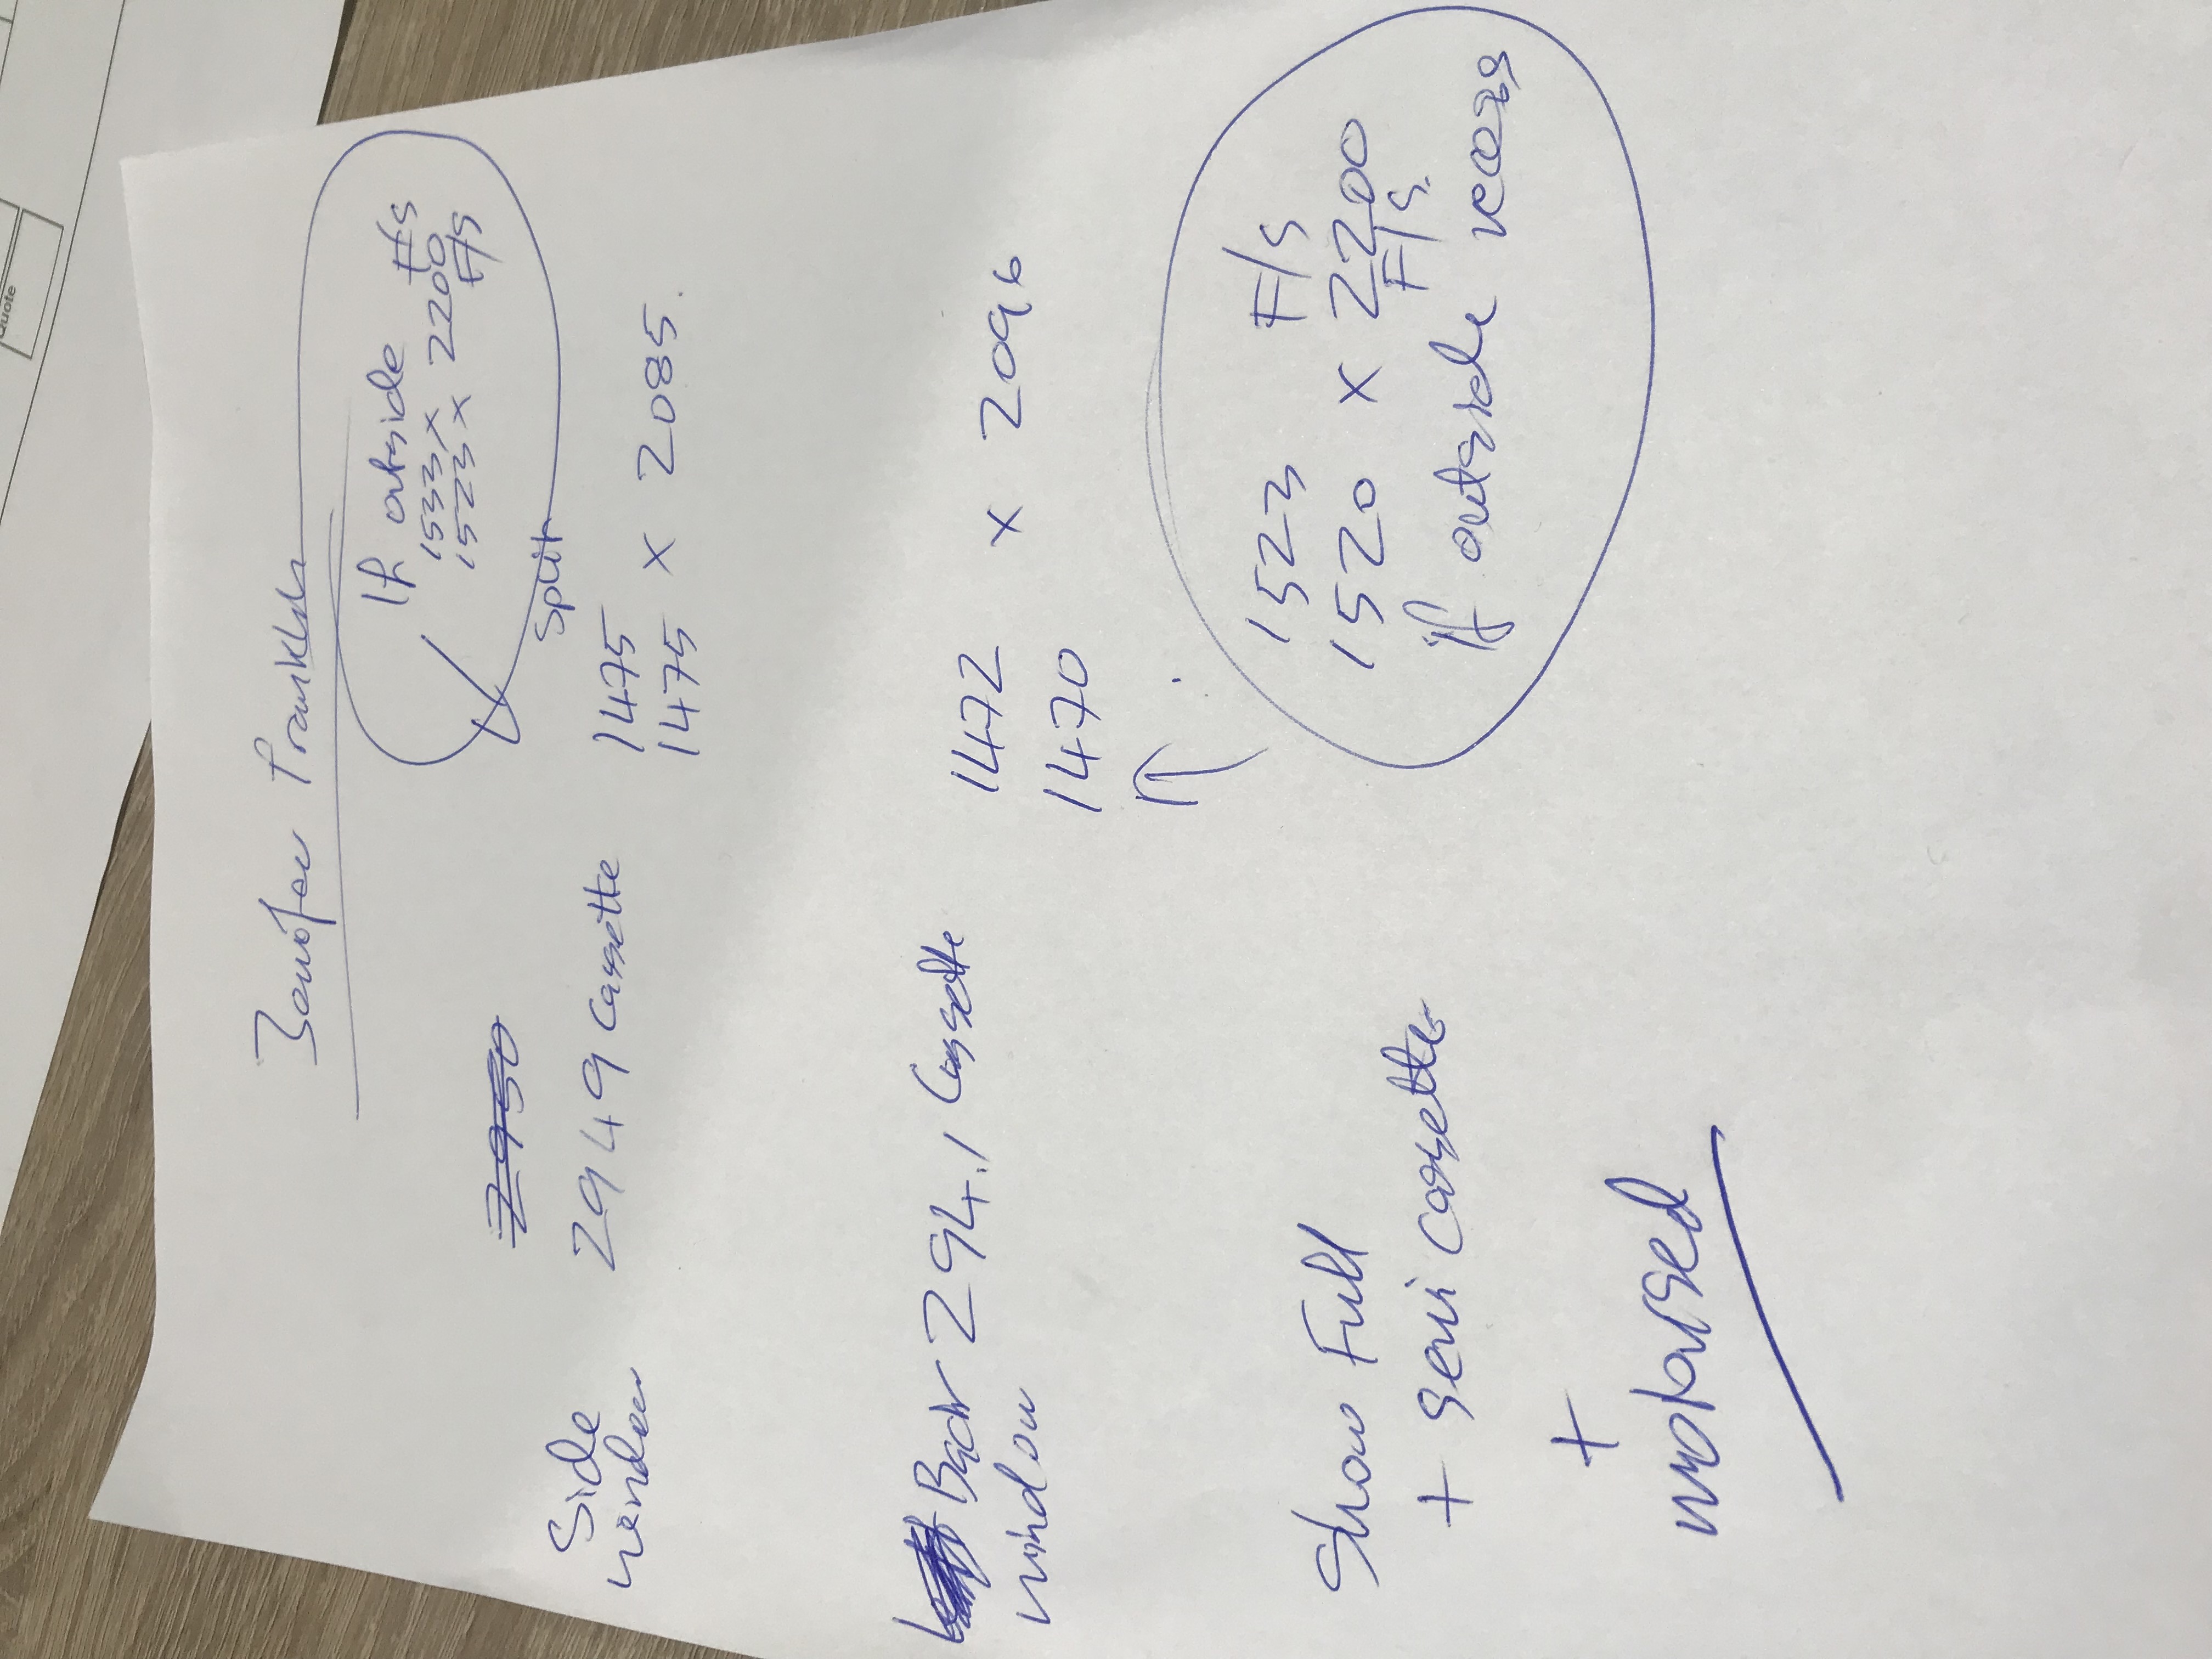 If outside
1533 x F/S
1523 x 2200
F/S
Split
2950
Side
window
2949 Cassette
1475
1475 x 2085
Back
window
2941 Cassette
1472 x 2096
1470
1523 F/S
1520 x 2200
F/S.
if outside recess
Show Full
+ semi cassette
+
motorised
Quote